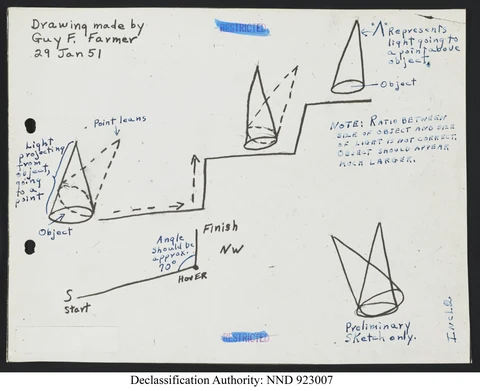 Drawing made by
Guy F. Farmer
29 Jan 51
RESTRICTED
"Λ" Represents
light going to
a point above
object.
Object
Point leans
NOTE: RATIO BETWEEN
SIZE OF OBJECT AND SIZE
OF LIGHT IS NOT CORRECT.
OBJECT SHOULD APPEAR
MUCH LARGER.
Light
projecting
from
object,
going
to a
point
Object
Finish
Angle
should be
approx.
70°
NW
HOVER
S
Start
Preliminary
Sketch only.
RESTRICTED
Declassification Authority: NND 923007